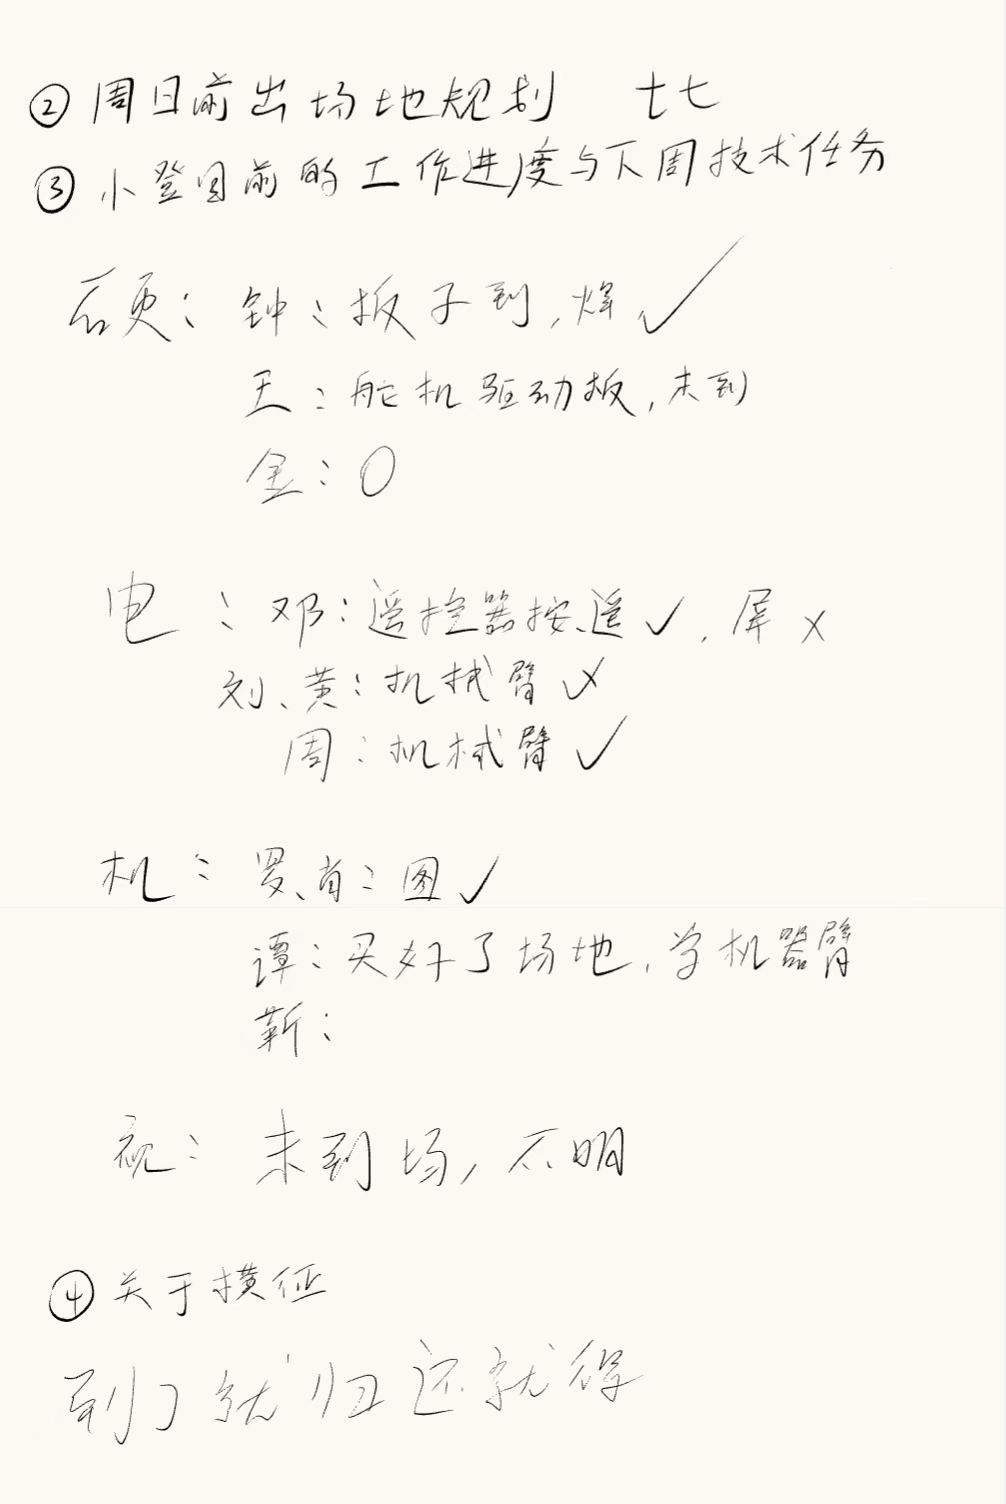 ② 周日前出场地规划 七七
③ 小登目前的工作进度与下周技术任务
石更: 钟: 板子到, 焊 ✓
王: 舵机驱动板, 未到
金: 0
电: 邓: 遥控器按、遥 ✓, 屏 ×
刘、黄: 机械臂 ×
周: 机械臂 ✓
机: 罗、肖: 图 ✓
谭: 买好了场地, 学机器臂
靳:
视: 未到场, 不明
④ 关于横征
到了就归还就得